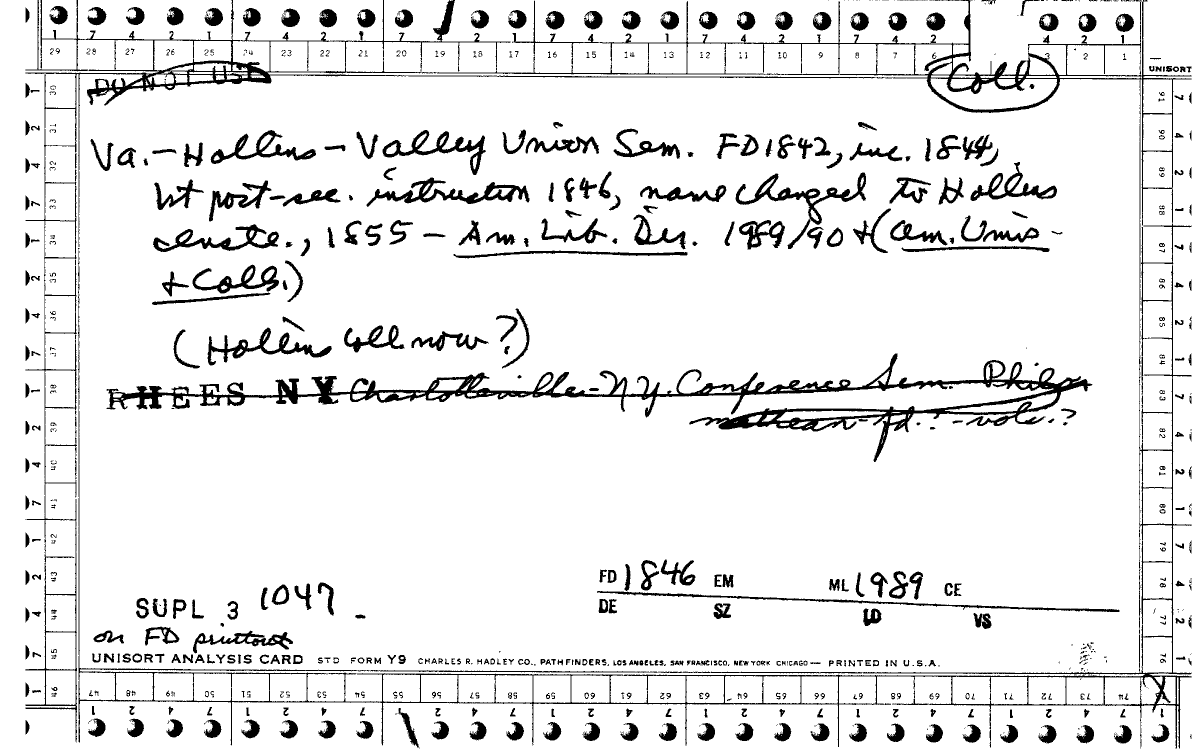 1 7 4 2 1 7 4 2 1 7 4 2 1 7 4 2 1 7 4 2 1 7 4 2 4 2 1
29 28 27 26 25 24 23 22 21 20 19 18 17 16 15 14 13 12 11 10 9 8 7 6 3 2 1
UNISORT
DO NOT USE
Coll.
Va. - Hollins - Valley Union Sem. FD 1842, inc. 1844,
1st post-sec. instruction 1846, name changed to Hollins
Instte., 1855 - Am. Lib. Dir. 1989/90 + (Am. Univs -
+ Colls.)
(Hollins Coll. now?)
RHEES NY Charlotteville - N.Y. Conference Sem. Philo-
mathean - fd.? - vols.?
FD 1846 EM ML 1989 CE
DE SZ LD VS
SUPL 3 1047 -
on FD printout
UNISORT ANALYSIS CARD STD FORM Y9 CHARLES R. HADLEY CO., PATHFINDERS, LOS ANGELES, SAN FRANCISCO, NEW YORK CHICAGO — PRINTED IN U.S.A.
46 47 48 49 50 51 52 53 54 55 56 57 58 59 60 61 62 63 64 65 66 67 68 69 70 71 72 73 74